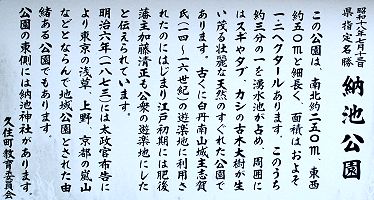 昭和十八年七月十一日
県指定名勝
納池公園
この公園は、南北約二五〇m、東西
約五〇mと細長く、面積はおよそ
一・二ヘクタールあります。このうち
約三分の一を湧水池が占め、周囲に
はスギやタブ、カシの古木大樹が生
い茂る壮麗な天然のすぐれた公園で
あります。古くに白丹南山城主志賀
氏(一四～一六世紀)の遊楽地に利用さ
れたのにはじまり江戸初期には肥後
藩主加藤清正も公衆の遊楽地にした
と伝えられています。
明治六年(一八七三)には太政官布告に
より東京の浅草、上野、京都の嵐山
などとならんで地域公園とされた由
緒ある公園でもあります。
公園の東側には納池神社があります。
久住町教育委員会